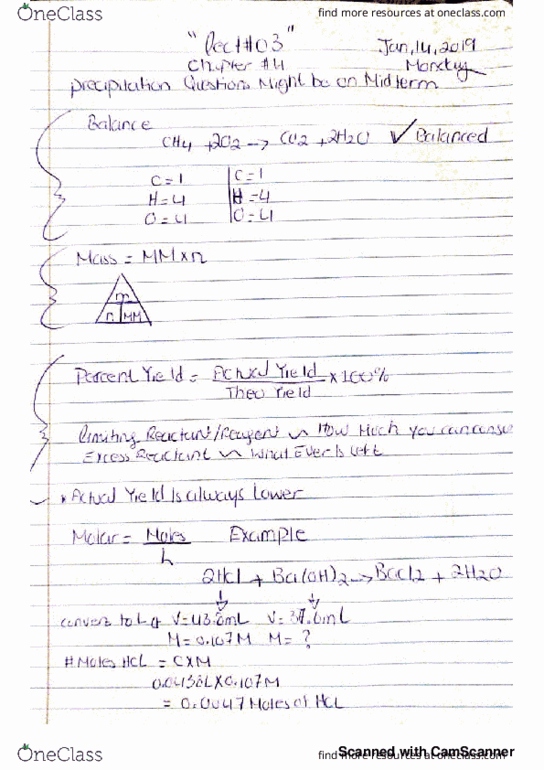 OneClass
find more resources at oneclass.com
"Lect#03"
Jan,14,2019
Chapter #4
Monday
precipitation Questions Might be on Midterm
Balance
CH4 + 2O2 -> CO2 + 2H2O ✓ Balanced
C=1 | C=1
H=4 | H=4
O=4 | O=4
Mass = MM x n
m
n MM
Percent Yield = Actual Yield x 100%
Theo Yield
limiting Reactant/Reagent ~ How Much you can
Excess Reactant ~ What Ever is left
* Actual Yield is always lower
Molar = Moles Example
L
2HCl + Ba(OH)2 -> BaCl2 + 2H2O
convert to L V=43.8mL V=37.6mL
M=0.107M M=?
# Moles HCL = C x M
0.0438L x 0.107M
= 0.0047 Moles of HCL
OneClass
find more resources at oneclass.com
Scanned with CamScanner